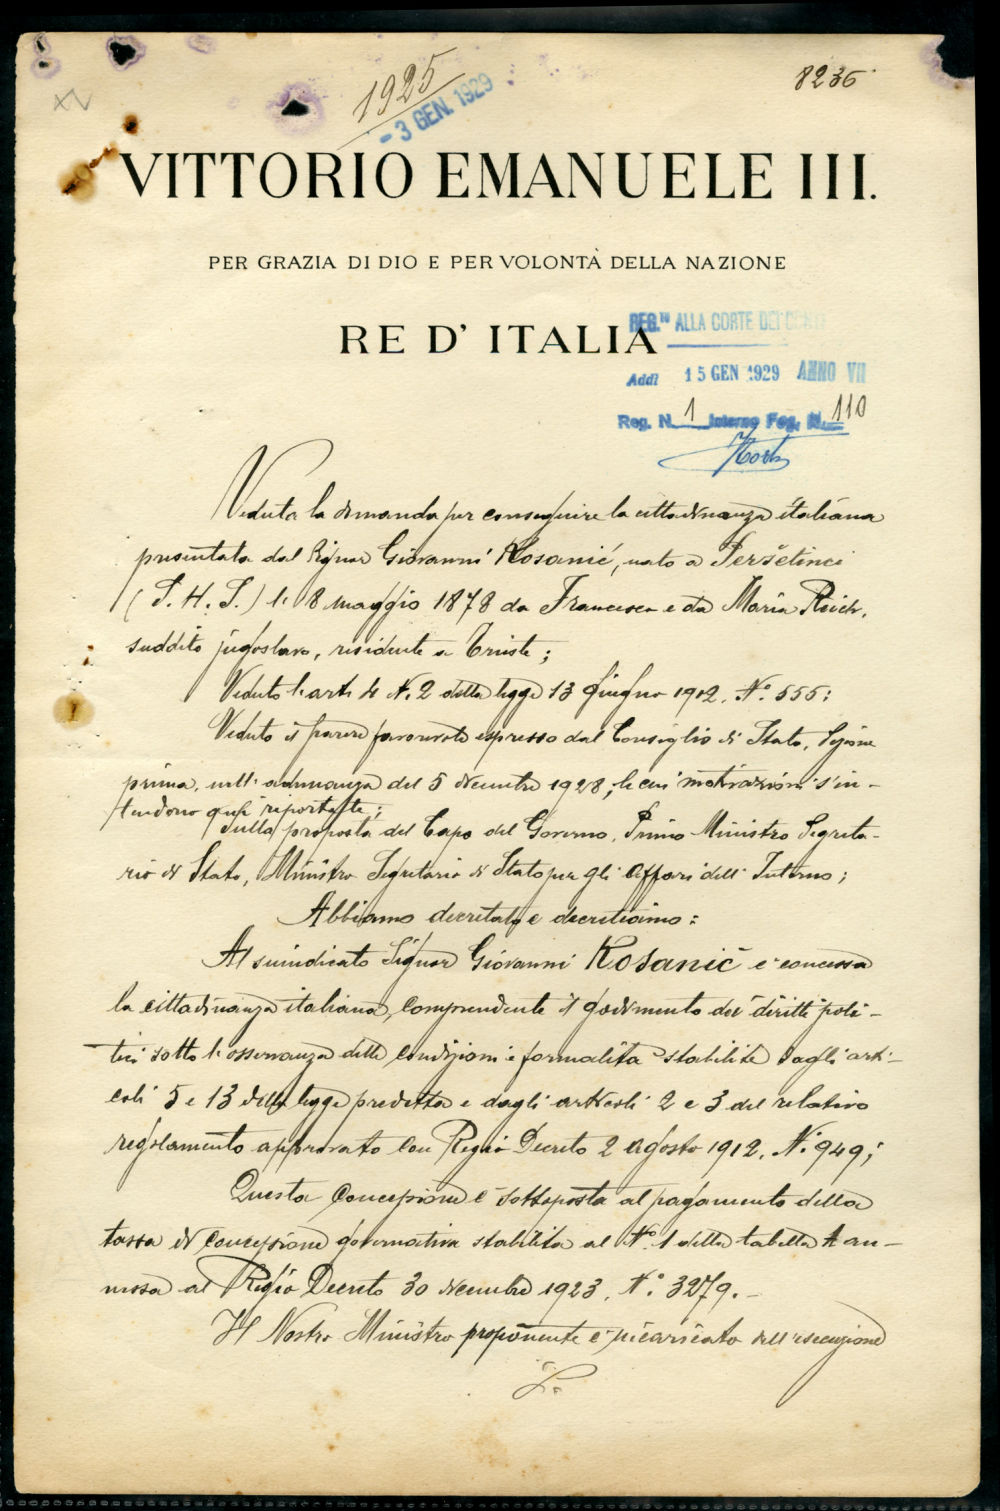 XV
1925
8236
- 3 GEN. 1929
VITTORIO EMANUELE III.
PER GRAZIA DI DIO E PER VOLONTÀ DELLA NAZIONE
RE D' ITALIA
REG.TO ALLA CORTE DEI CONTI
Addì 15 GEN 1929 ANNO VII
Reg. N. 1 Interno Fog. N. 110
Veduta la domanda per conseguire la cittadinanza italiana
presentata dal Signor Giovanni Kosanić, nato a Peršetinci
(S. H. S.) li 8 maggio 1878 da Francesco e da Maria Reich,
suddito jugoslavo, residente a Trieste;
Veduto l'art. 4 N. 2 della legge 13 giugno 1912, N.° 555:
Veduto il parere favorevole espresso dal Consiglio di Stato, Sezione
prima, nell'adunanza del 5 dicembre 1928, le cui motivazioni s'in-
tendono qui riportate;
Sulla proposta del Capo del Governo, Primo Ministro Segreta-
rio di Stato, Ministro Segretario di Stato per gli Affari dell'Interno;
Abbiamo decretato e decretiamo:
Al suindicato Signor Giovanni Kosanić è concessa
la cittadinanza italiana, comprendente il godimento dei diritti poli-
tici sotto l'osservanza delle condizioni e formalità stabilite dagli arti-
coli 5 e 13 della legge predetta e dagli articoli 2 e 3 del relativo
regolamento approvato con Regio Decreto 2 agosto 1912, N.° 949;
Questa concessione è sottoposta al pagamento della
tassa di concessione governativa stabilita al N.° 1 della tabella A an-
nessa al Regio Decreto 30 dicembre 1923, N.° 3279.-
Il Nostro Ministro proponente è incaricato dell'esecuzione